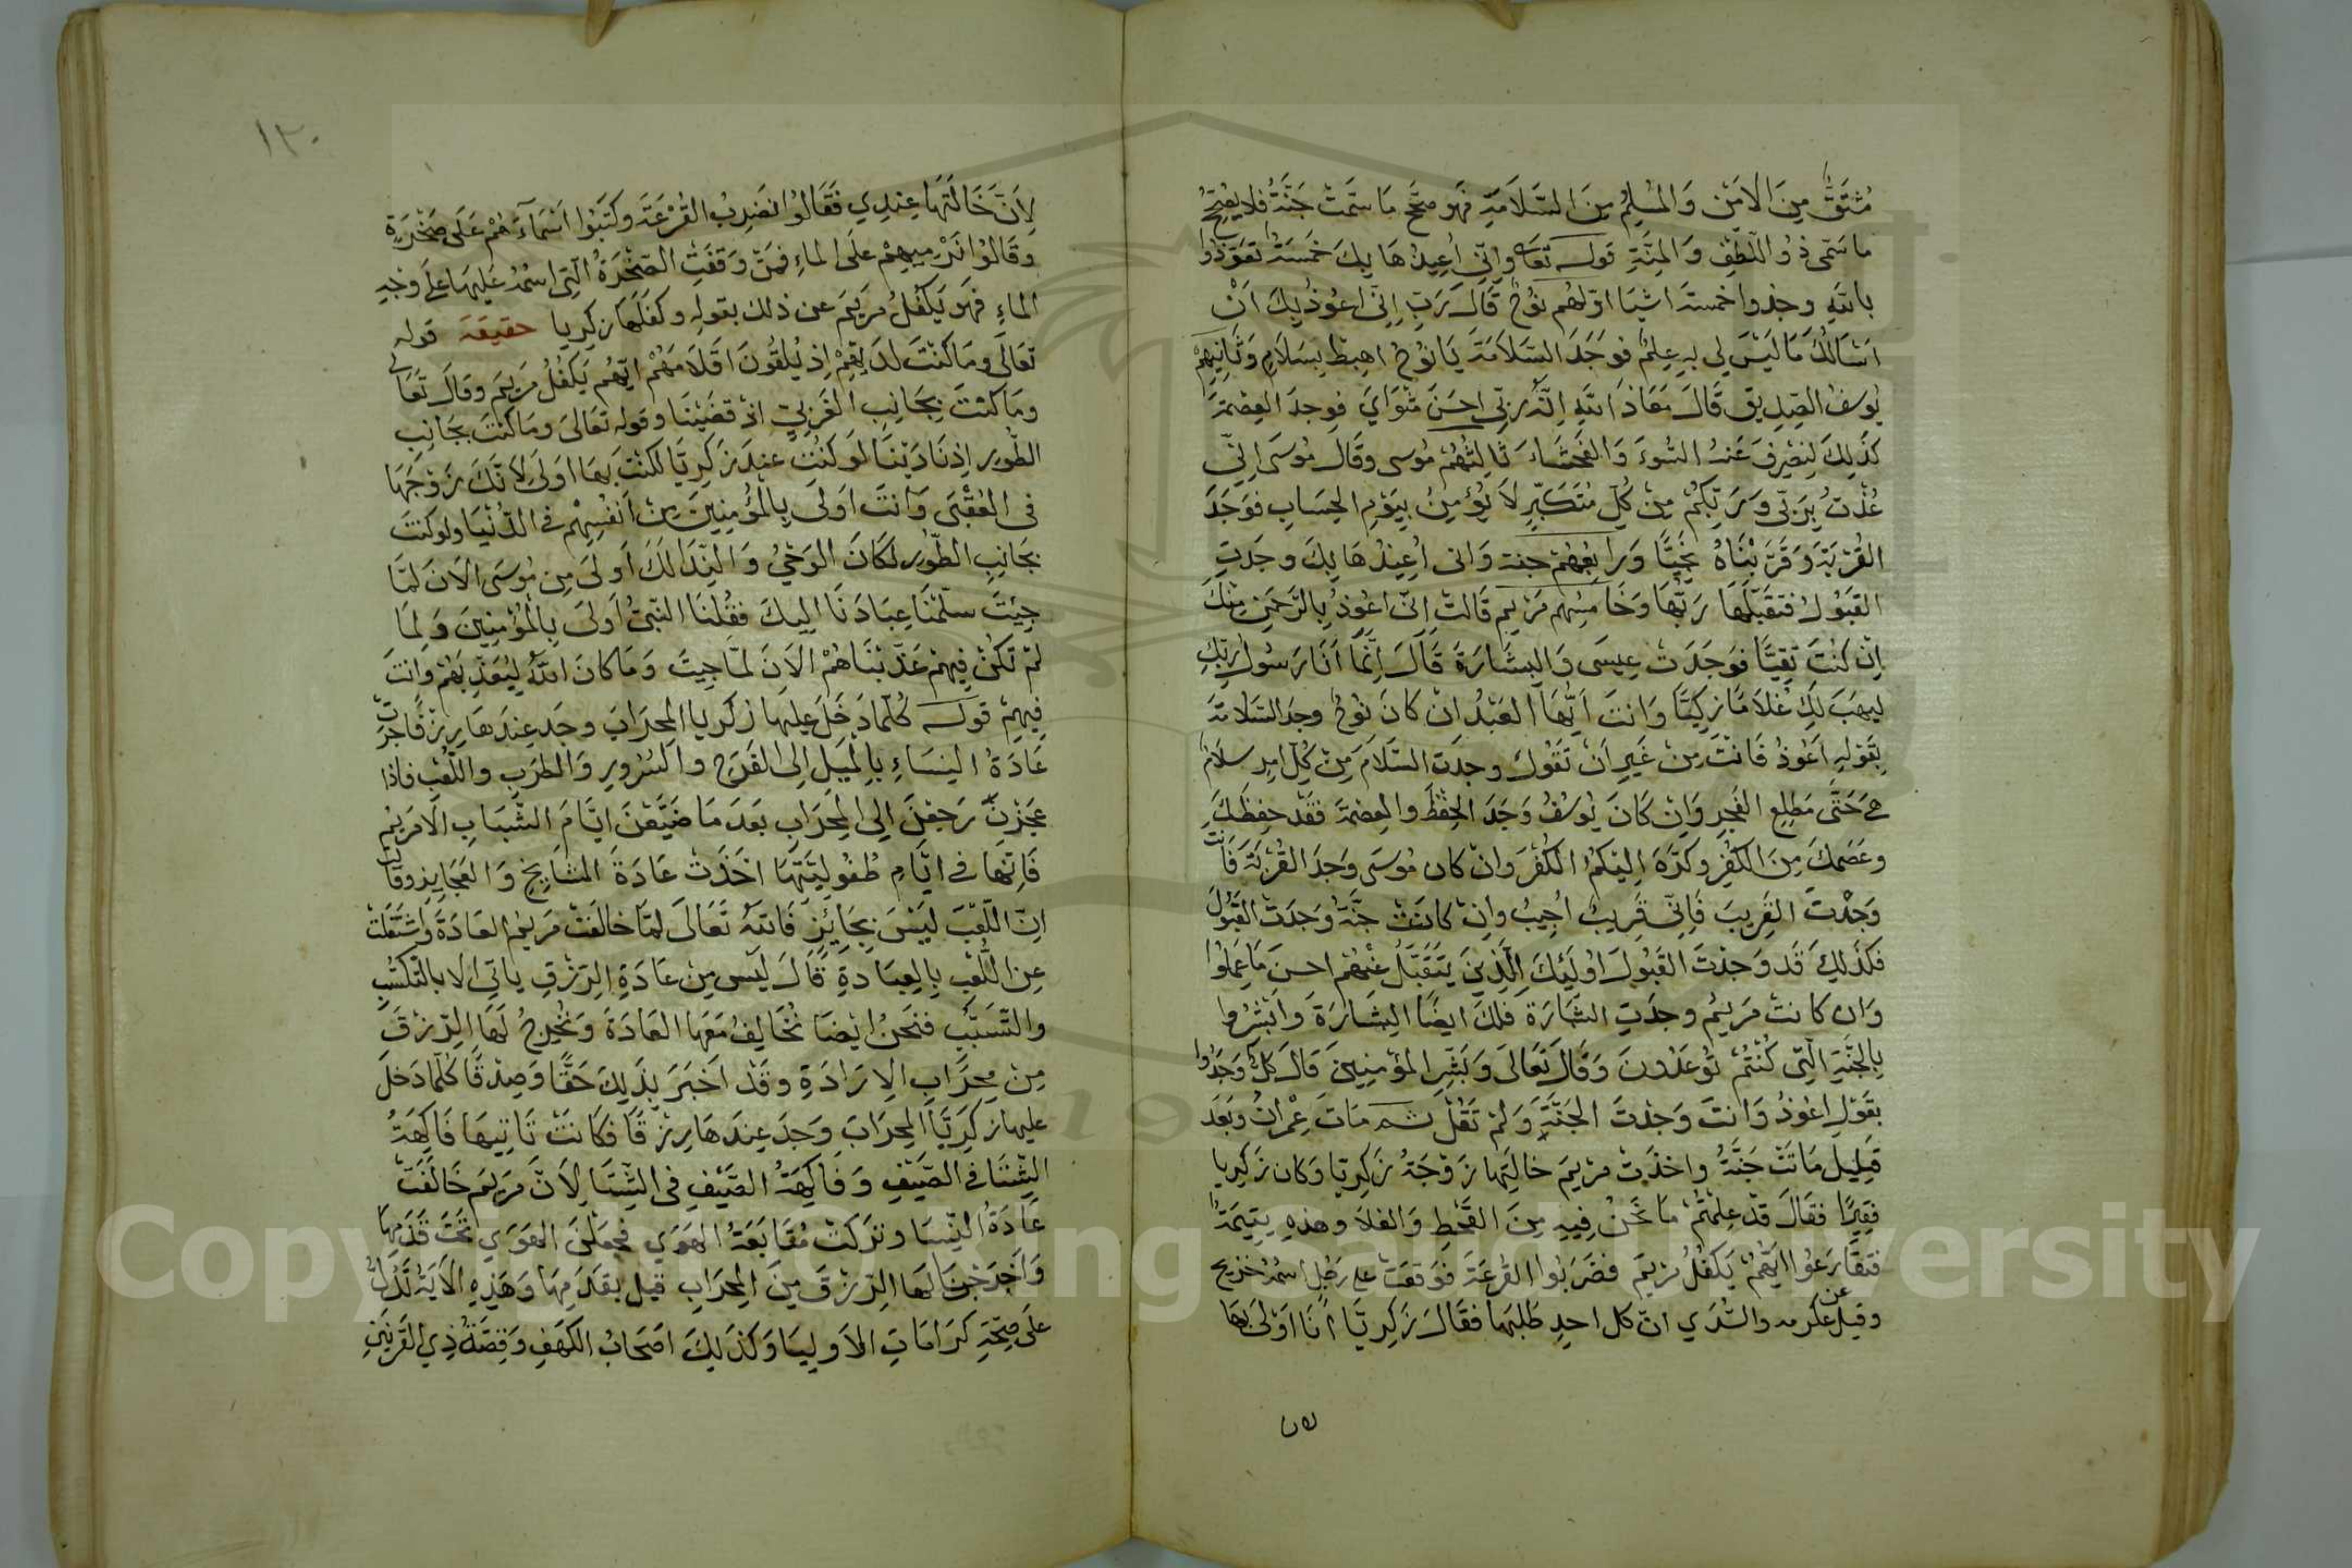 مُشتَقٌّ مِنَ الاَمْنِ وَالمُسْلِمُ مِنَ السَّلَامَةِ فَهو صحَّ مَا سَمَّتْ جَنَّةُ فلا يقبحُ
ما سَمّى ذُو اللّطفِ وَالمِنَّةِ قوله تعالى وانّي اُعِيذُهَا بِكَ خَمْسَةٌ تَعَوّذُوا
بالله وجدوا خمسة اشيا اوّلهُم نُوحُ قَالَ رَبِّ اِنّي اعُوذُ بِكَ اَنْ
اسْاَلَكَ مَا لَيْسَ لِي بِهِ عِلمٌ فوَجَدَ السَّلَامَةَ يَا نوُحُ اهبِطْ بِسَلَامٍ وَثَانِيهِمْ
يُوسفُ الصِّدِيق قَالَ مَعَاذَ اللهِ اِنَّهُ رَبّي احسَنَ مَثْوَايَ فوجدَ العِصْمَةَ
كذَلِكَ لِنَصْرِفَ عَنهُ السُّوءَ وَالفَحْشَاءَ ثالِثُهُمْ مُوسى وقَالَ مُوسَى اِنّي
عُذْتُ بِرَبّي وَرَبِّكُمْ مِنْ كُلِّ مُتَكَبّرٍ لَا يُؤمِنُ بِيَوْمِ الحِسَابِ فوَجَدَ
القُرْبَةَ وَقَرَّبْنَاهُ نَجِيًّا وَرابعُهُمْ جنة وَانى اُعِيذُهَا بِكَ وجَدَتِ
القبُولَ فتقَبَّلَهَا رَبّهَا وَخَامِسُهم مَرْيَم قَالتْ اِنّي اعُوذُ بِالرَّحمَنِ مِنْكَ
اِنْ كنْتَ تَقِيًّا فوَجَدَتْ عِيسَى وَالبِشَارَةَ قَالَ اِنَّمَا اَنَا رَسُولُ رَبِّكِ
لِيهَبَ لَكِ غُلَامًا زَكِيًّا وَانتَ اَيُّهَا العَبْدُ اِنْ كَانَ نوُحُ وجَدَ السَّلامَةَ
بِقَوْلِهِ اَعُوذُ فَانْتَ مِنْ غَيرِ اَنْ تَقُولَ وجدَت السَّلَامَ مِنْ كُلِّ امرٍ سلامٌ
هي حَتَّى مَطلِعِ الفجرِ وَاِنْ كَانَ يُوسُفُ وَجَدَ الحِفْظَ والعِصْمَةَ فقَدْ حِفِظَكَ
وعَصَمكَ مِنَ الكُفْرِ وكرَّهَ اِليْكمُ الكُفْرَ وانْ كان مُوسَى وَجَدَ القُرْبَةَ فَانْتَ
وَجَدْتَ القَرِيبَ فَاِنّي قَريبٌ اُجِيبُ وانْ كانَتْ حَنَّةُ وَجَدَتْ القَبُولَ
فكذَلِكَ قَد وَجدْتَ القَبُولَ اُولَئِكَ الَّذِينَ يَتَقَبَّلُ عَنْهُم احسنَ مَا عَمِلُوا
وَان كانتْ مَريَمُ وجدَتِ البِشَارَةَ فلكَ ايضًا البِشَارَةَ وَابْشِرُوا
بِالجَنَّةِ الَّتِي كُنْتُمْ تُوعَدُونَ وَقَالَ تَعَالَى وَبَشِّرِ المُؤْمِنِينَ قالَ كلٌّ وَجَدُوا
بقَوْلِ اعُوذُ وَانتَ وَجَدْتَ الجَنَّةَ وَلَمْ تَقُلْ ثم مَاتَ عِمْرَانُ وبَعْدَ
قَلِيل مَاتَتْ حَنَّةُ واخذَتْ مَرْيمَ خالتهَا زَوْجَةُ زَكَرِيّا وَكان زَكَرِيا
فقِيرًا فقَالَ قَدْ عِلِمْتُمْ مَا نَحْنُ فِيهِ مِنَ القَحْطِ وَالغلَا وهذِهِ يَتِيمَةٌ
فتقَارَعُوا ايُّهُمْ يَكفُلُ مَرْيَمَ فضَرَبُوا القُرعَةَ فوَقعَتْ على رَجُلٍ اسمُهُ جُرَيج
وقيل عن عكرمه والسُّدّي انّ كل احدٍ طلبَها فقَالَ زَكَرِيَّا اَنَا اوْلَى بهَا
لان
١٣٠
لِاَنَّ خَالَتَهَا عِندِي فَقَالُوا نضرِبُ القُرْعَةَ وكتَبُوا اَسْمَاءَهُمْ عَلَى صَخْرَةٍ
وقَالوُا نَرْمِيهِمْ علَى الماءِ فمَنْ وَقَفَتِ الصَّخْرَةُ الّتِى اسْمُهُ عَليهَا علَى وَجْهِ
الماءِ فهَو يَكفُلُ مَريَمَ عن ذلك بقولِهِ وكفَّلَهَا زكريا حقيقة قوله
تَعالَى ومَا كُنْتَ لدَيهِمْ اِذ يُلقُونَ اقْلَامَهُمْ ايُّهُم يَكفُلُ مَريَمَ وقَالَ تَعَالى
ومَا كنْتَ بِجَانِبِ الغَرْبِيّ اذْ قضَيْنَا وقوله تعَالىَ ومَا كُنتَ بجَانِبِ
الطُّورِ اِذ نَادَيْنَا لَوْ كنْتَ عندَ زَكَرِيَّا لكنْتَ بهَا اوْلَى لأنَّكَ زَوْجُهَا
فى العُقْبَى وَانتَ اَولىَ بِالمُؤْمِنِينَ مِنْ اَنفُسِهِمْ فى الدُّنيَا ولو كنتَ
بجَانبِ الطُّورِ لكَانَ الوَحْيُ وَالنِّدَا لَكَ اَولَى مِن مُوسَى الاَنَ لمَّا
جِيتَ سَلّمْنَا عِبَادَنَا اِليكَ فقُلنَا النّبيُّ اَولىَ بِالمُؤمِنِينَ وَلمَّا
لمْ تَكُنْ فِيهِمْ عَذَّبْنَاهُمْ الاَنَ لمَّا جِيتَ وَمَا كانَ اللهُ لِيُعَذِّبَهُمْ وانتَ
فِيهِمْ قوله كُلَّمَا دَخَلَ عليها زكريا المِحرَابَ وجَدَ عِندَهَا رِزْقًا جَرَتْ
عَادَةُ النِسَاءِ بِالميلِ اِلى الفَرَحِ والسُّرُورِ وَالطّرَبِ واللّعْبِ فاذا
عَجَزنَ رَجَعْنَ اِلى المِحرَابِ بعَدَ مَا ضَيَّعْنَ ايَّامَ الشّبَابِ الّا مَريَم
فَاِنّهَا فى ايَّامِ طُفُولِيَّتِهَا اخَذَتْ عَادَةَ المشَايِخِ وَالعَجَايِزِ وقَالت
انّ اللّعْبَ لَيْسَ بِجَائِزٍ فَاللهُ تَعَالىَ لمّا خالَفَتْ مَريَم العَادَةَ وَاشتَغَلَتْ
عن اللّعْبِ بِالعِبَادةِ قَالَ ليْسَ مِنْ عَادَةِ الرّزقِ ياتي الا بالتّكسُّبِ
والتَّسَبُّبِ فنَحنُ ايْضًا نُخَالِفُ مَعَهَا العَادَةَ وَنُخْرِجُ لَهَا الرّزْقَ
مِنْ مِحرَابِ الاِرَادَةِ وقَدْ اخبَرَ بذَلِكَ حَقًّا وَصِدْقًا كُلّمَا دَخَلَ
عليها زكَرِيَّا المِحرَابَ وَجَدَ عِندَهَا رِزْقًا فكَانتْ تَاتِيهَا فَاكِهَةُ
الشِّتَا فى الصّيْفِ وَفَاكِهَةُ الصّيْفِ فى الشّتَا لِاَنَّ مَريَم خَالَفَتْ
عَادَةُ النِّسَا وترَكتْ مُتَابَعَةُ الهوَي فجعَلنَ الهوَي تَحْتَ قَدَمِهَا
وَاَخرَجْنَا لهَا الرّزْقَ مِنَ المِحرَابِ قيلَ بقدَمِهَا وَهَذِهِ الاَيَةُ تَدُلُّ
علَى صِحَّةِ كرَامَاتِ الاَولِيَا وَكذَلِكَ اصْحَابُ الكَهفِ وَقِصَّةُ ذِي القَرنَينِ
Copyright © King Saud University